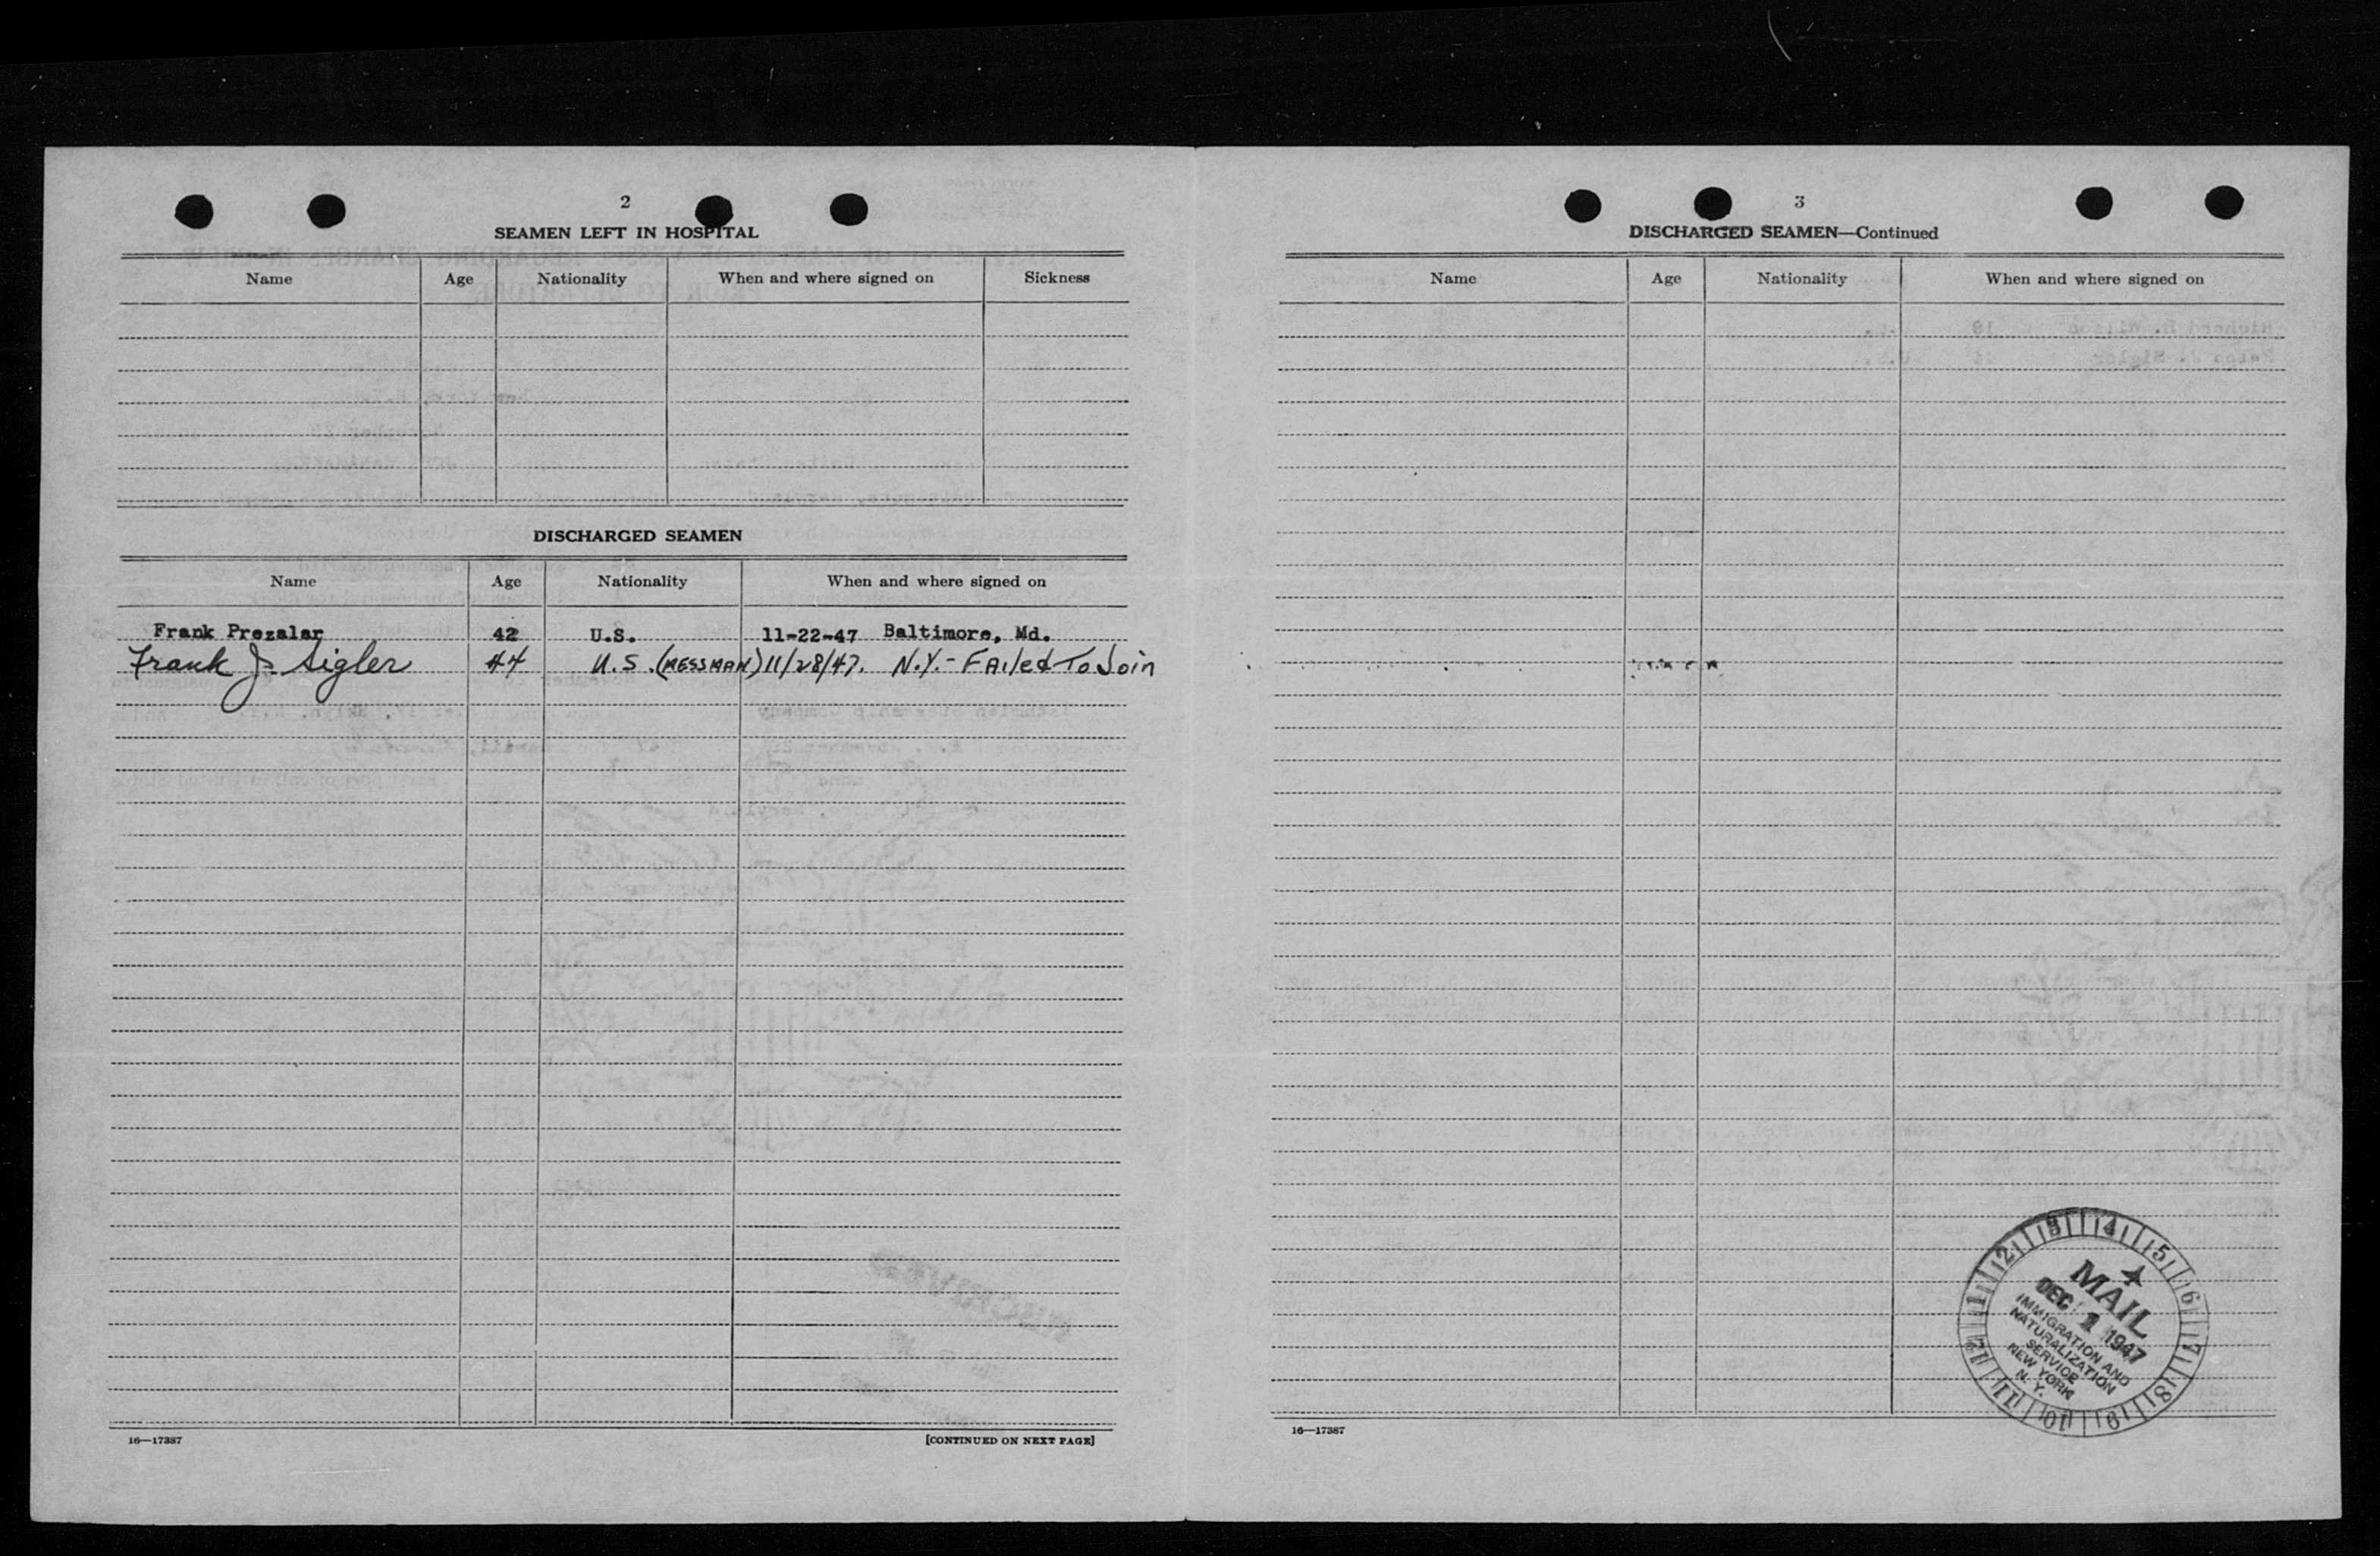 2
SEAMEN LEFT IN HOSPITAL
Name Age Nationality When and where signed on Sickness
DISCHARGED SEAMEN
Name Age Nationality When and where signed on
Frank Prezalar 42 U.S. 11-22-47 Baltimore, Md.
Frank J. Sigler 44 U.S. (MESSMAN) 11/28/47. N.Y. - Failed To Join
16—17387 [CONTINUED ON NEXT PAGE]
3
DISCHARGED SEAMEN—Continued
Name Age Nationality When and where signed on
1 2 3 4 5 6 7 8 9 10 11 12
MAIL
DEC 1 1947
IMMIGRATION AND
NATURALIZATION
SERVICE
NEW YORK
N. Y.
16—17387